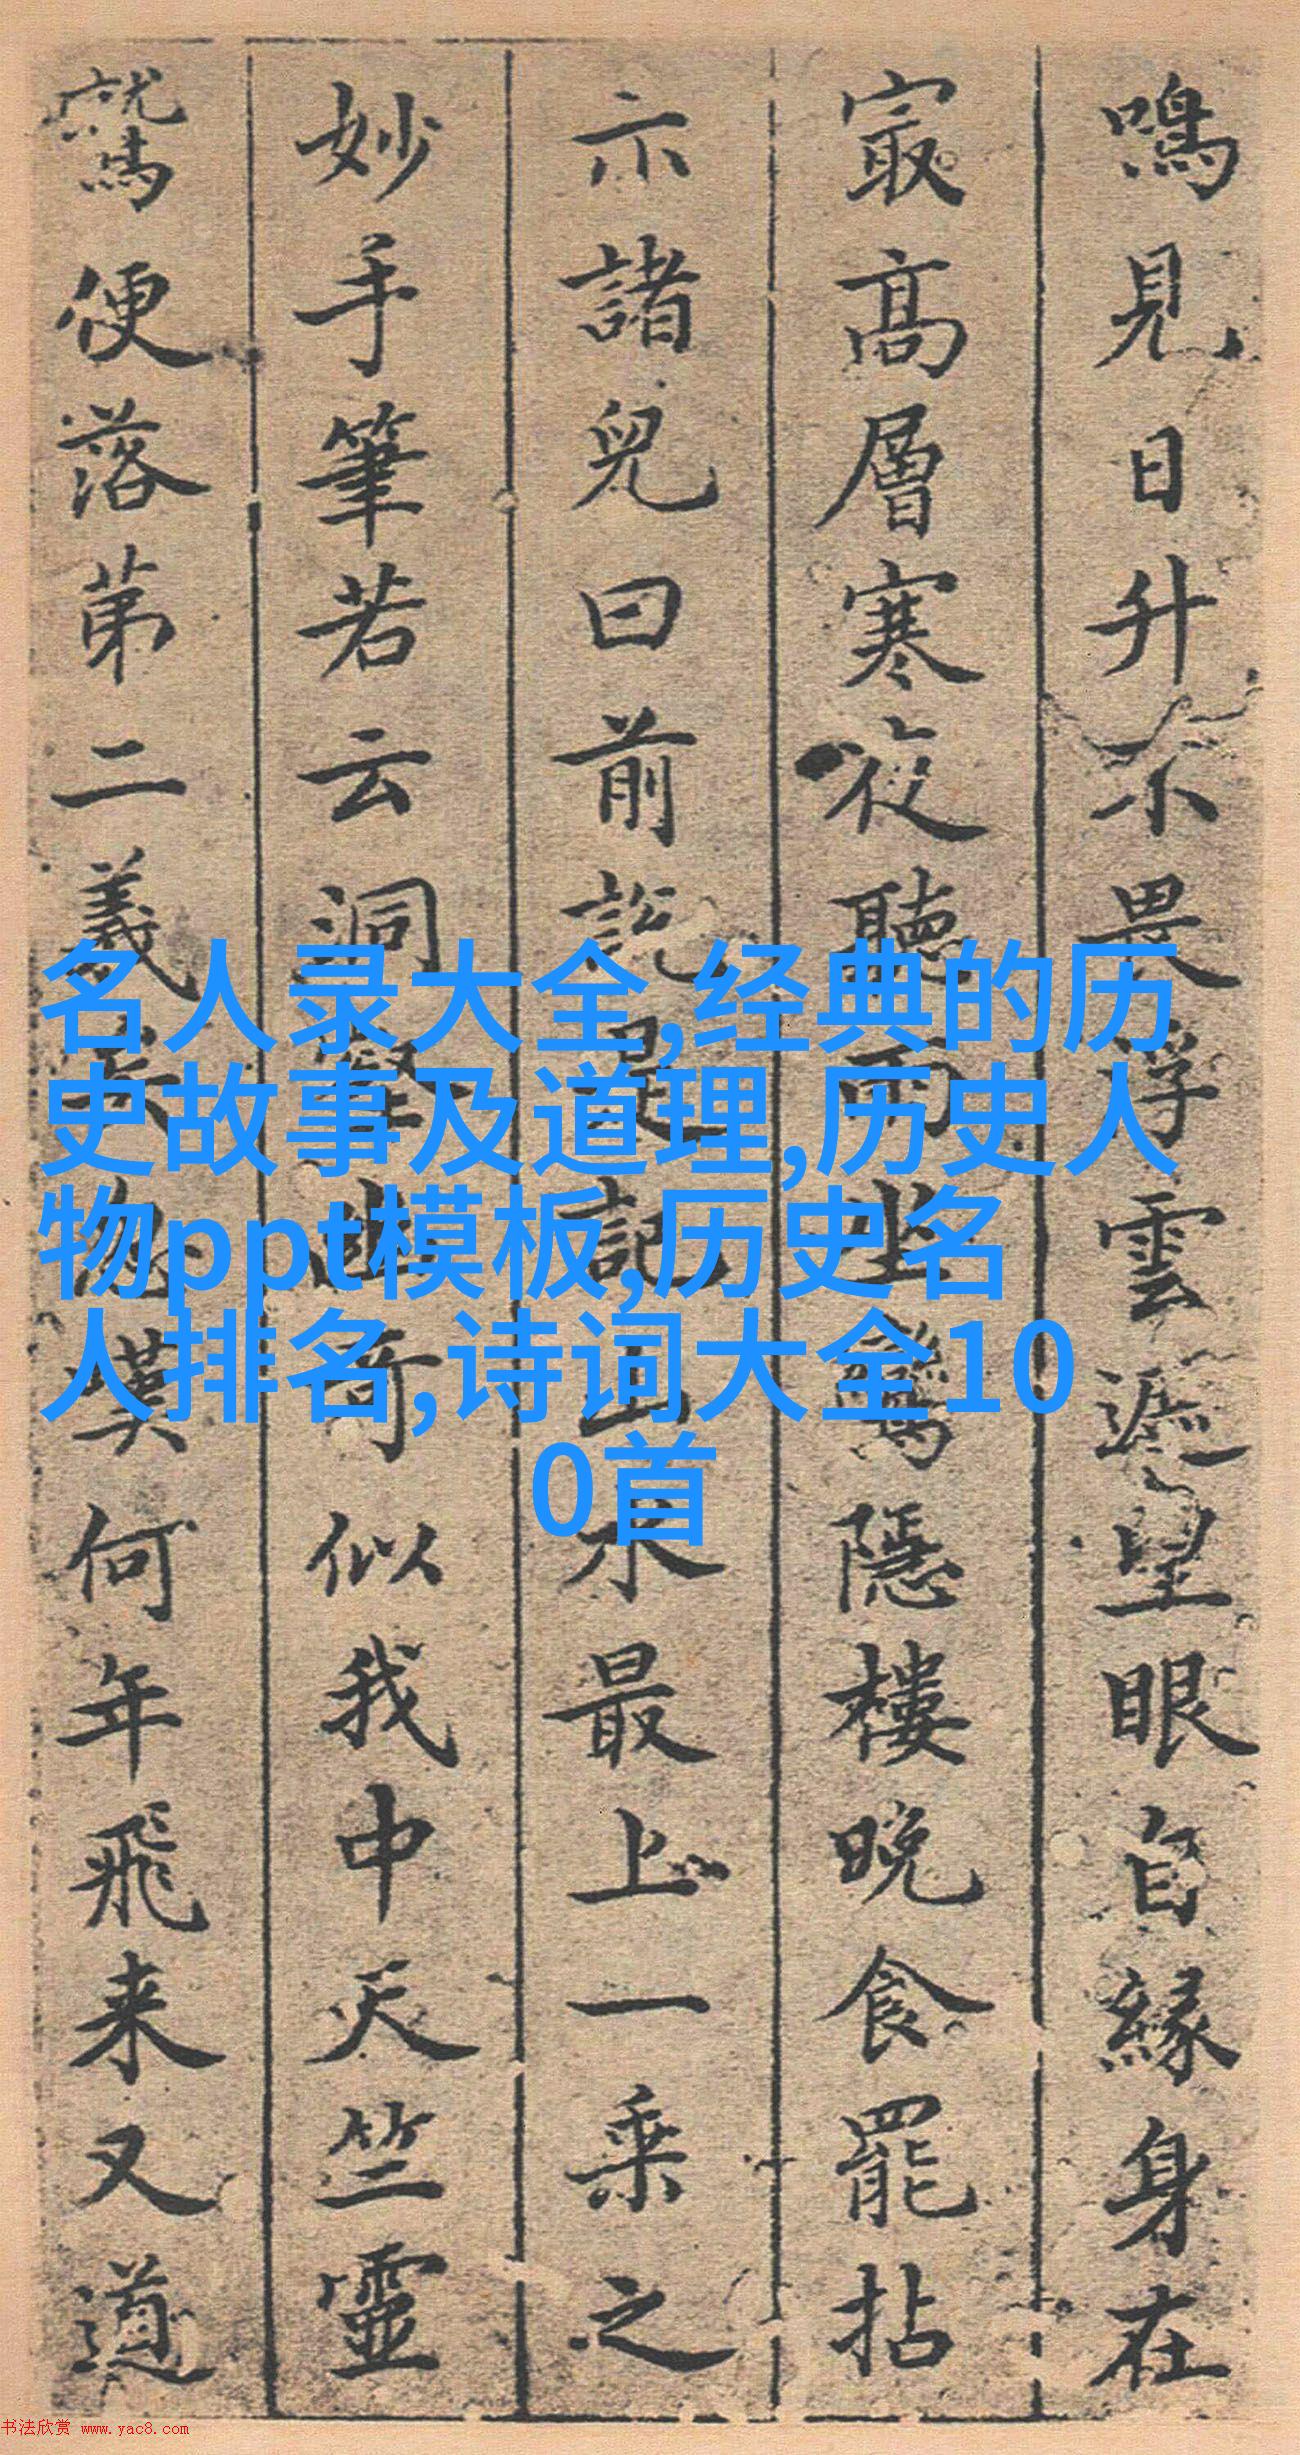 鳴見日升不畏浮雲遮望眼自緣身在
㝡高層寒夜聽雨坐隱樓晚食罷拈
示諸兒曰前說是記山水最上一乘之
妙手筆若云洞壑幽奇似我中天竺靈
鷲便落第二義矣嘆何年飛来又道
名人录大全,经典的历
史故事及道理,历史人
物ppt模板,历史名
人排名,诗词大全10
0首
书法欣赏 www.yac8.com